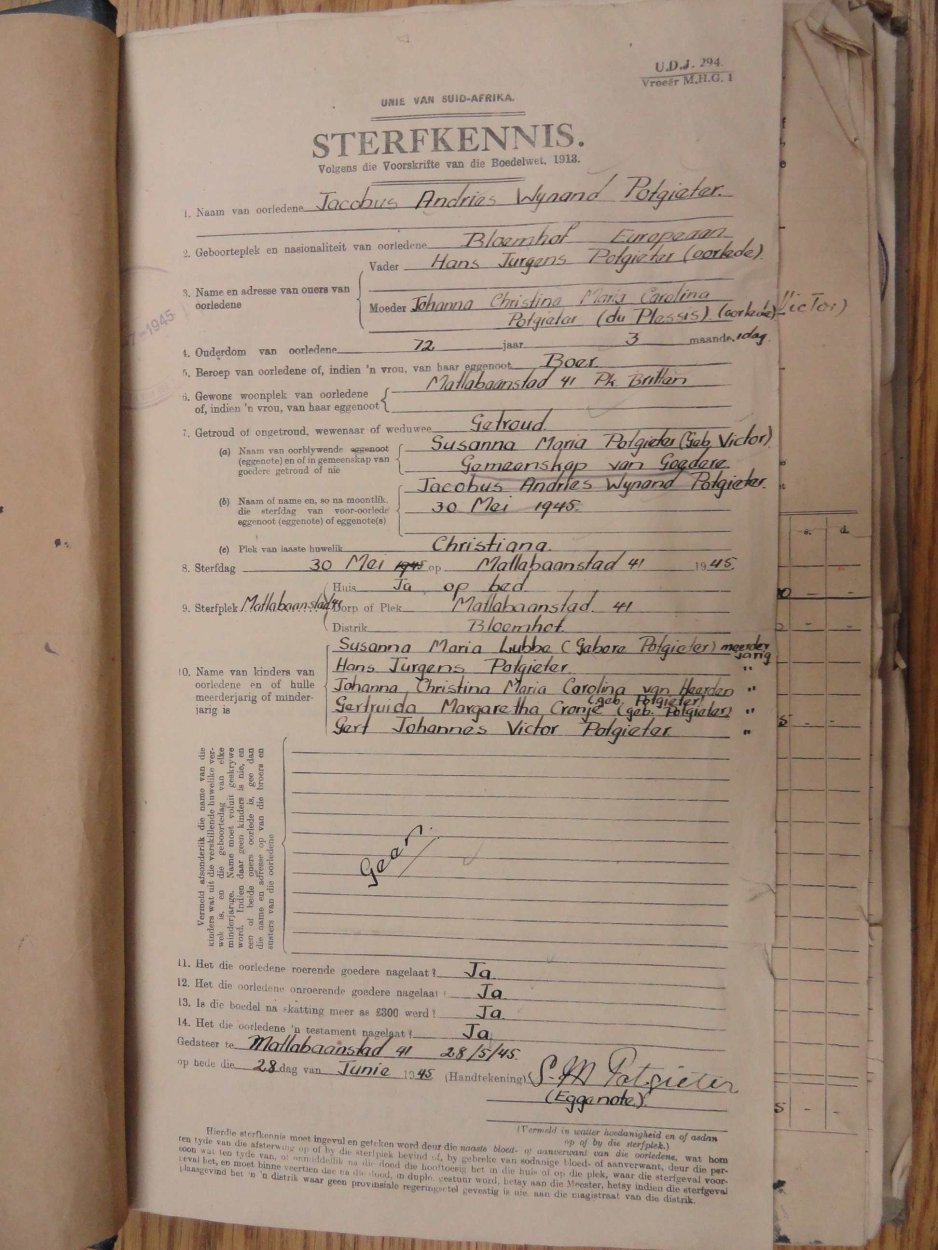 U.D.J. 294.
Vroeër M.H.G. 1
UNIE VAN SUID-AFRIKA.
STERFKENNIS.
Volgens die Voorskrifte van die Boedelwet, 1913.
1. Naam van oorledene Jacobus Andries Wynand Potgieter.
2. Geboorteplek en nasionaliteit van oorledene Bloemhof Europeaan
3. Name en adresse van ouers van oorledene
Vader Hans Jurgens Potgieter (oorlede)
Moeder Johanna Christina Maria Carolina
Potgieter (du Plessis) (oorlede)
Victor)
7-1945
4. Ouderdom van oorledene 72 jaar 3 maande, 1dag
5. Beroep van oorledene of, indien 'n vrou, van haar eggenoot Boer.
6. Gewone woonplek van oorledene of, indien 'n vrou, van haar eggenoot Matlabaanstad 41 Pk Britten
7. Getroud of ongetroud, wewenaar of weduwee Getroud.
(a) Naam van oorblywende eggenoot (eggenote) en of in gemeenskap van goedere getroud of nie
Susanna Maria Potgieter (Geb. Victor)
Gemeenskap van Goedere
(b) Naam of name en, so na moontlik, die sterfdag van voor-oorlede eggenoot (eggenote) of eggenote(s)
Jacobus Andries Wynand Potgieter.
30 Mei 1945.
(c) Plek van laaste huwelik Christiana.
8. Sterfdag 30 Mei 1945 op Matlabaanstad 41 1945.
9. Sterfplek Matlabaanstad 41
Huis Ja op bed.
Dorp of Plek Matlabaanstad. 41
Distrik Bloemhof.
10. Name van kinders van oorledene en of hulle meerderjarig of minderjarig is
Susanna Maria Lubbe (Gebore Potgieter) meerderjarig
Hans Jurgens Potgieter. "
Johanna Christina Maria Carolina van Heerden "
(geb. Potgieter)
Gertruida Margaretha Cronje (geb. Potgieter) "
Gert Johannes Victor Potgieter "
Vermeld afsonderlik die name van die
kinders wat uit die verskillende huwelike verwek
is, en die geboortedag van elke
minderjarige. Name moet voluit geskrywe
word. Indien daar geen kinders is nie, en
een of beide ouers oorlede is, gee dan
die name en adresse op van die broers en
susters van die oorledene
Geen.
11. Het die oorledene roerende goedere nagelaat? Ja
12. Het die oorledene onroerende goedere nagelaat? Ja
13. Is die boedel na skatting meer as £300 werd? Ja
14. Het die oorledene 'n testament nagelaat? Ja
Gedateer te Matlabaanstad 41 28/5/45.
op hede die 28 dag van Junie 1945 (Handtekening) S. M Potgieter
(Eggenote).
(Vermeld in watter hoedanigheid en of asdan
op of by die sterfplek.)
Hierdie sterfkennis moet ingevul en geteken word deur die naaste bloed- of aanverwant van die oorledene, wat hom
ten tyde van die afsterwing op of by die sterfplek bevind of, by gebreke van sodanige bloed- of aanverwant, deur die persoon
wat ten tyde van, of onmiddellik na die dood die hooftoesig het in die huis of op die plek, waar die sterfgeval voorgeval
het, en moet binne veertien dae na die dood, in duplo, gestuur word, hetsy aan die Meester, hetsy indien die sterfgeval
plaasgevind het in 'n distrik waar geen provinsiale regeringsetel gevestig is nie, aan die magistraat van die distrik.
s. d.